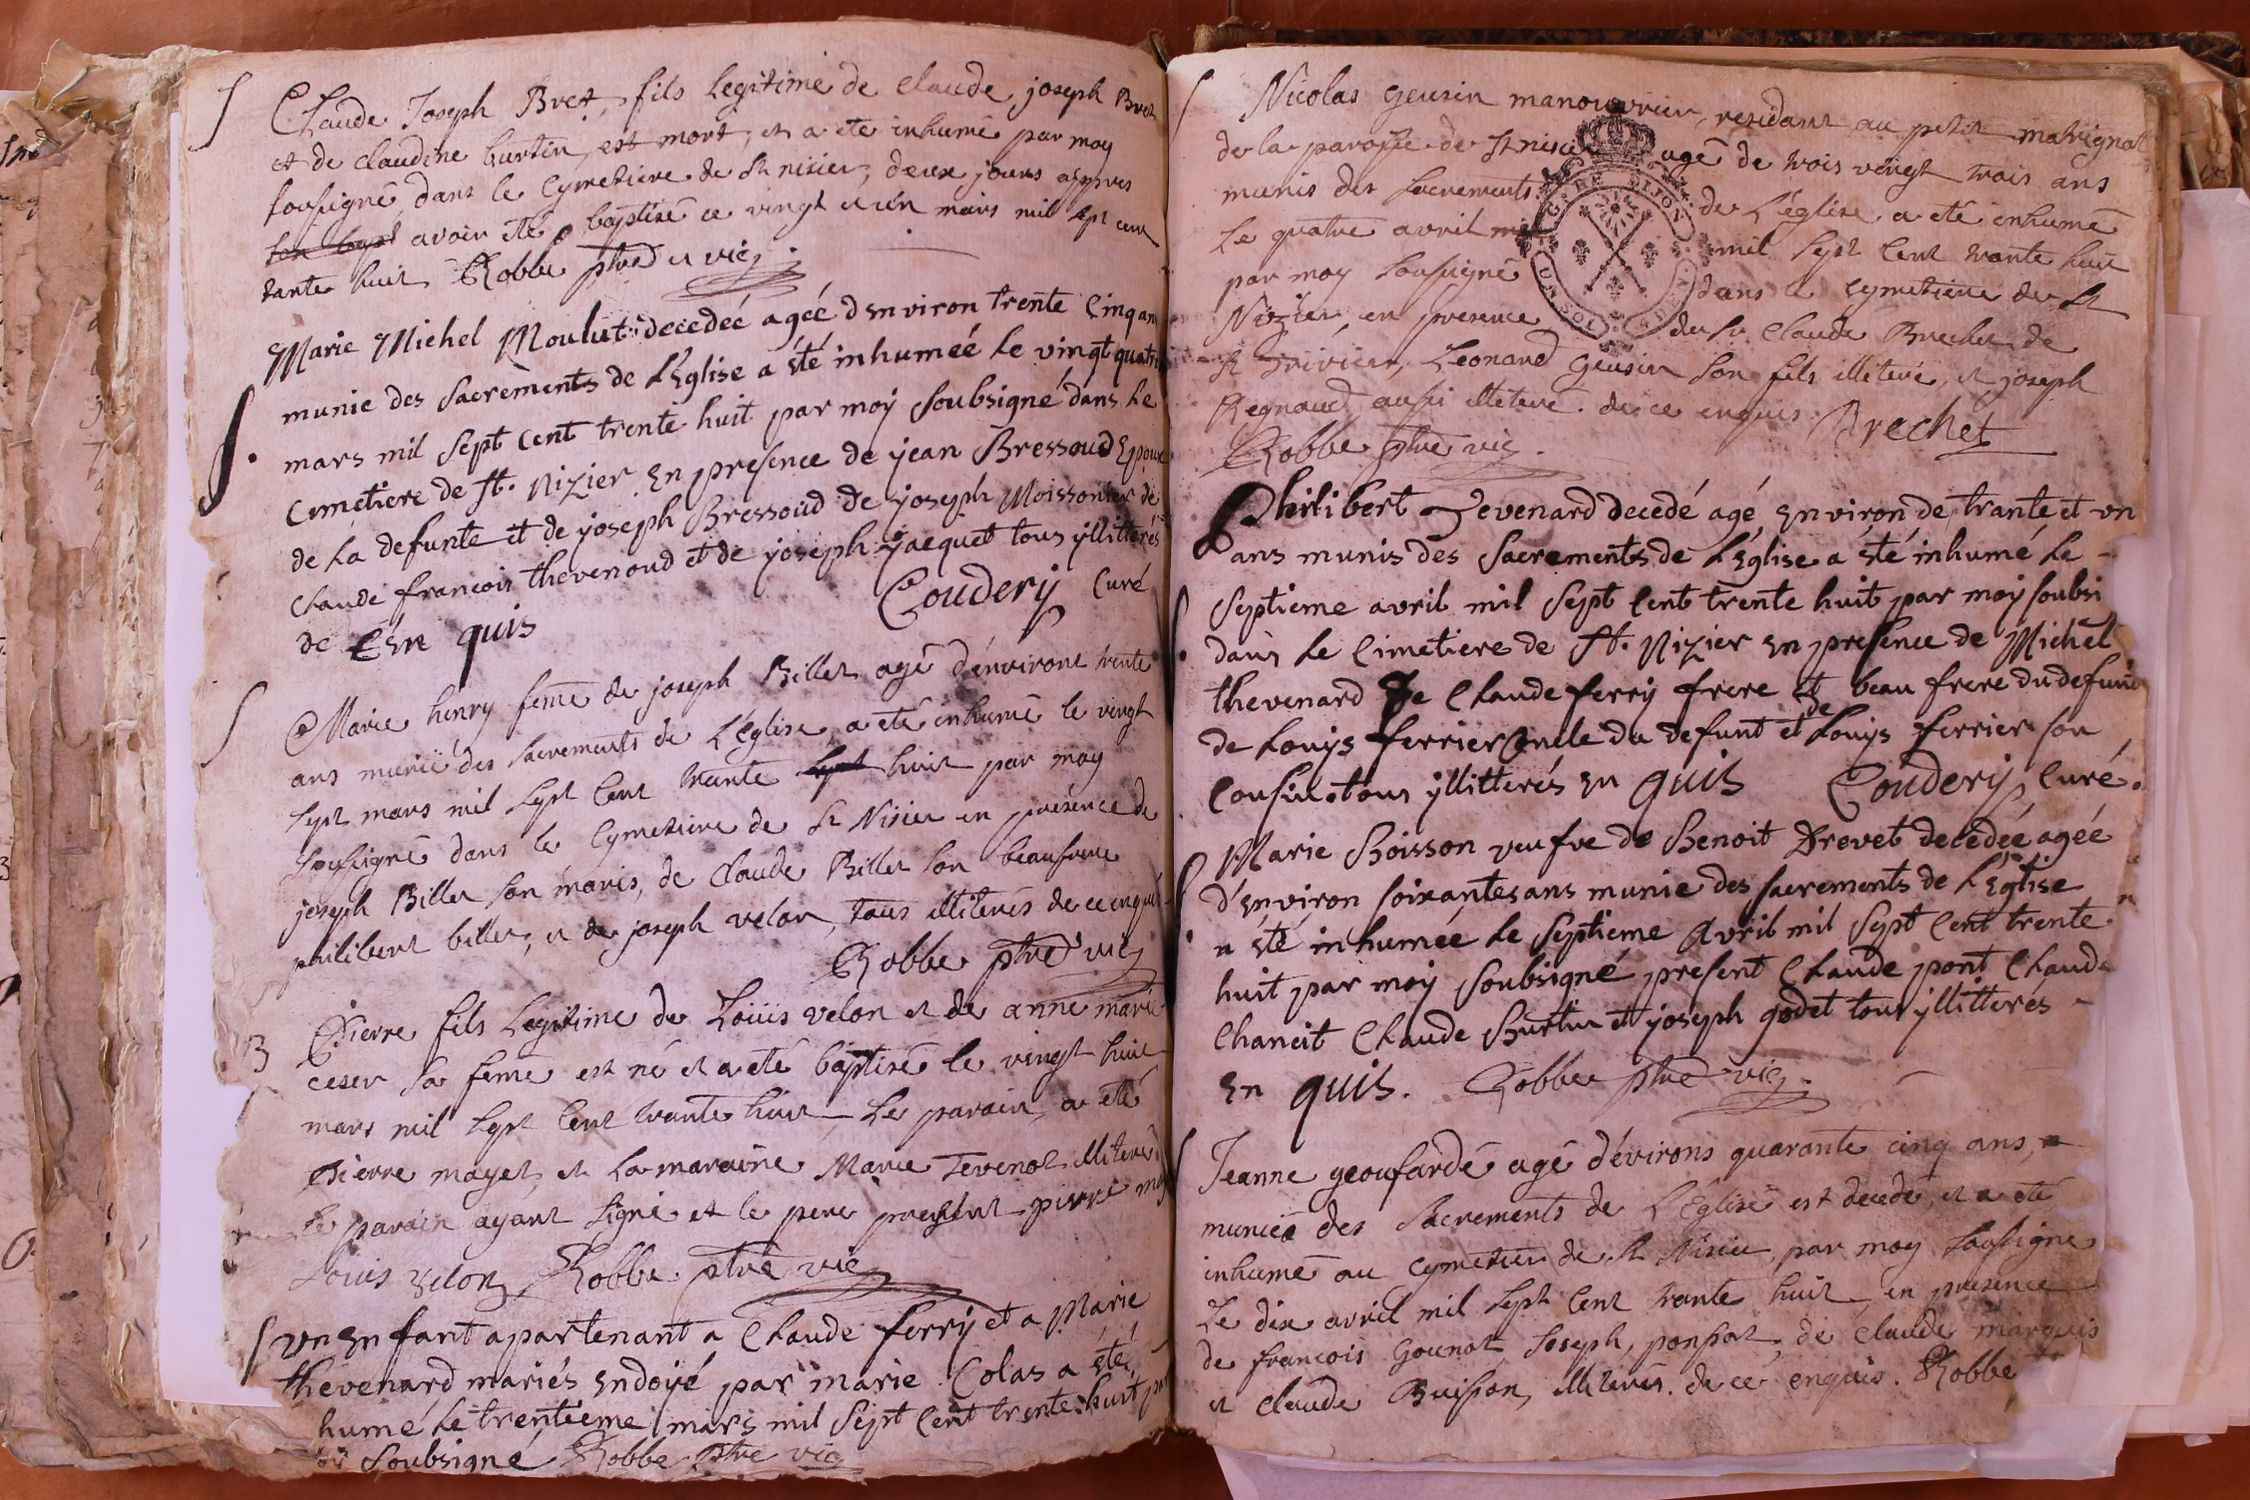 Claude Joseph Bret, fils legitime de Claude joseph Bret
et de claudine burtin, est mort, et a eté inhumé par moy
soussigné dans le cymetiere de St nisier, deux jours apres
avoir eté baptisé ce vingt et un mars mil sept cent
trante huit Robbe ptre et vic.
Marie Michel Moulut decedeé ageé d'environ trente cinq an
munie des sacrements de L'Eglise a été inhumeé le vingt quatr
mars mil sept cent trente huit par moy soubsigné dans le
cimetiere de St. Nizier en presence de jean Bressoud Epoux
de la defunte et de joseph Bressoud de joseph Moissonier de
claude francois thevenoud et de joseph jacquet tous yllitterés
de Ce En quis Coudery Curé
Marie henry feme de joseph Billet agé d'environt trente
ans munie des sacrements de L'Eglise, a eté inhumé le vingt
sept mars mil sept cent trante sept huit par moy
soussigné dans le cymetiere de St Nisier en presence de
joseph Billet son maris, de Claude Billet son beaufrere
philibert billet, et de joseph velon, tous illiterés de ce enquis
Robbe ptre vic
B Pierre fils legitime de Loüis velon et de anne marie
sa feme est né et a eté baptisé le vingt huit
mars mil sept cent trante huit Le parain a eté
Pierre mayet, et la maraine Marie Tevenot illiteré
le parain ayant signé et le pere present pierre may
Louis velon Robbe ptre vic
Un Enfant apartenant a Claude ferry et a Marie
thevenard mariés Endoyé par marie Colas a été
humé le trentieme mars mil sept cent trente huit p
soubsigné Robbe ptre vic
Nicolas geusin manouvrier, residant au petit matrignat
de la paroisse de St nisier agé de trois vingt trois ans
munis des sacrements de L'église a eté inhumé
le quatre avril mil sept cent trante huit
par moy soussigné dans le cymetiere de St
Nizier, en presence du Sr Claude Brechet de
St Trivier, Leonard geusin son fils illiteré, et joseph
Regnaud aussi illiteré. de ce enquis Brechet
Robbe ptre vic.
Philibert Tevenard decedé agé environ de trante et un
ans munis des sacrements de L'Eglise a été inhumé le
septieme avril mil sept cent trente huit par moy soubsi
dans le Cimetiere de St. Nizier en presence de Michel
thevenard de Claude ferry frere et beau frere du defunt
de Louys ferrier oncle du defunt et de Louys ferrier son
cousin tous yllitterés en quis Coudery Curé.
Marie Boisson veufve de Benoit Drevet decedée ageé
d'environ soixantes ans munie des sacrements de L'Eglise
a été inhumeé le septieme Avril mil sept cent trente
huit par moy soubsigné present Claude pont Claude
Chaneit Claude Burtin et joseph godet tous yllitterés
en quis. Robbe ptre vic.
Jeanne agé d'évirons quarante cinq ans,
munieé des sacrements de L'Eglise est decedé, et a eté
inhumé au cymetier de St Nisier, par moy soussigné
Le dix avril mil sept cent trante huit, en presence
de francois Gounot, Joseph, ponsot, de Claude marquis
et Claude Buisson, illiterés. de ce enquis. Robbe